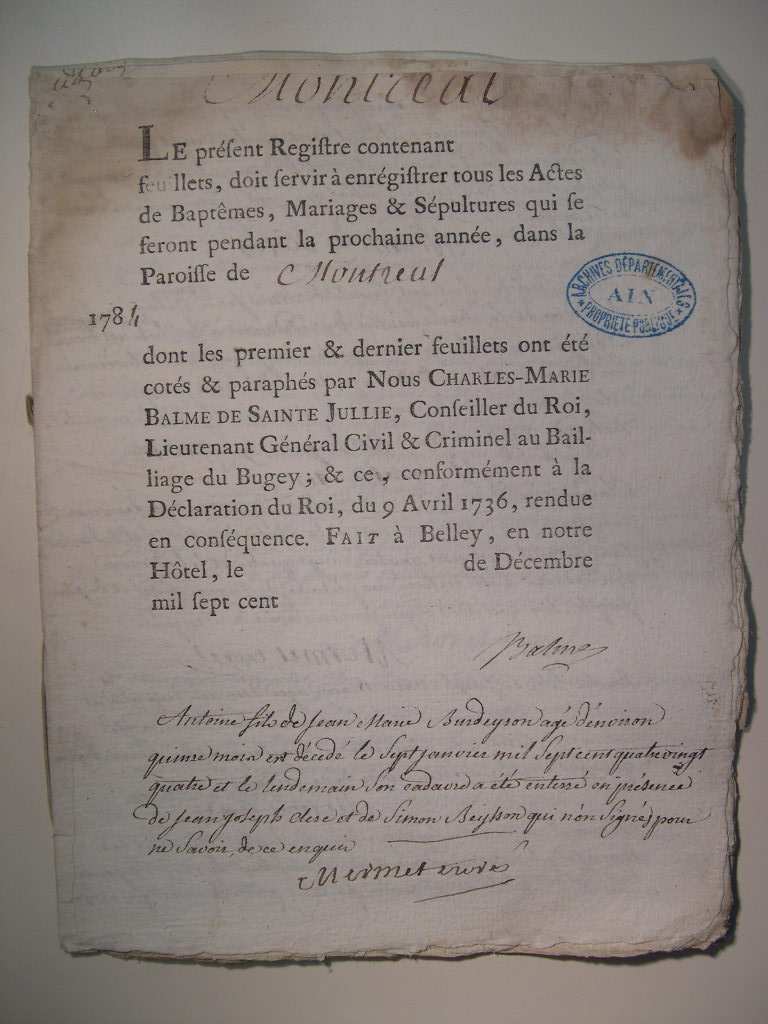 Montreal
LE préſent Regiſtre contenant
feuillets, doit ſervir à enrégiſtrer tous les Actes
de Baptêmes, Mariages & Sépultures qui ſe
feront pendant la prochaine année, dans la
Paroiſſe de Montreal
ARCHIVES DÉPARTEMENTALES
AIN
* PROPRIÉTÉ PUBLIQUE *
1784
dont les premier & dernier feuillets ont été
cotés & paraphés par Nous CHARLES-MARIE
BALME DE SAINTE JULLIE, Conſeiller du Roi,
Lieutenant Général Civil & Criminel au Bail-
liage du Bugey; & ce, conformément à la
Déclaration du Roi, du 9 Avril 1736, rendue
en conſéquence. FAIT à Belley, en notre
Hôtel, le de Décembre
mil ſept cent
Balme
Antoine fils de Jean Marie Burdeyron agé d'environ
quinse mois est décédé le sept janvier mil sept cent quatre vingt
quatre et le lendemain son cadavre a été enterré en présence
de jean joseph clerc et de Simon qui n'ont signé pour
ne savoir de ce enquis
Mermet curé